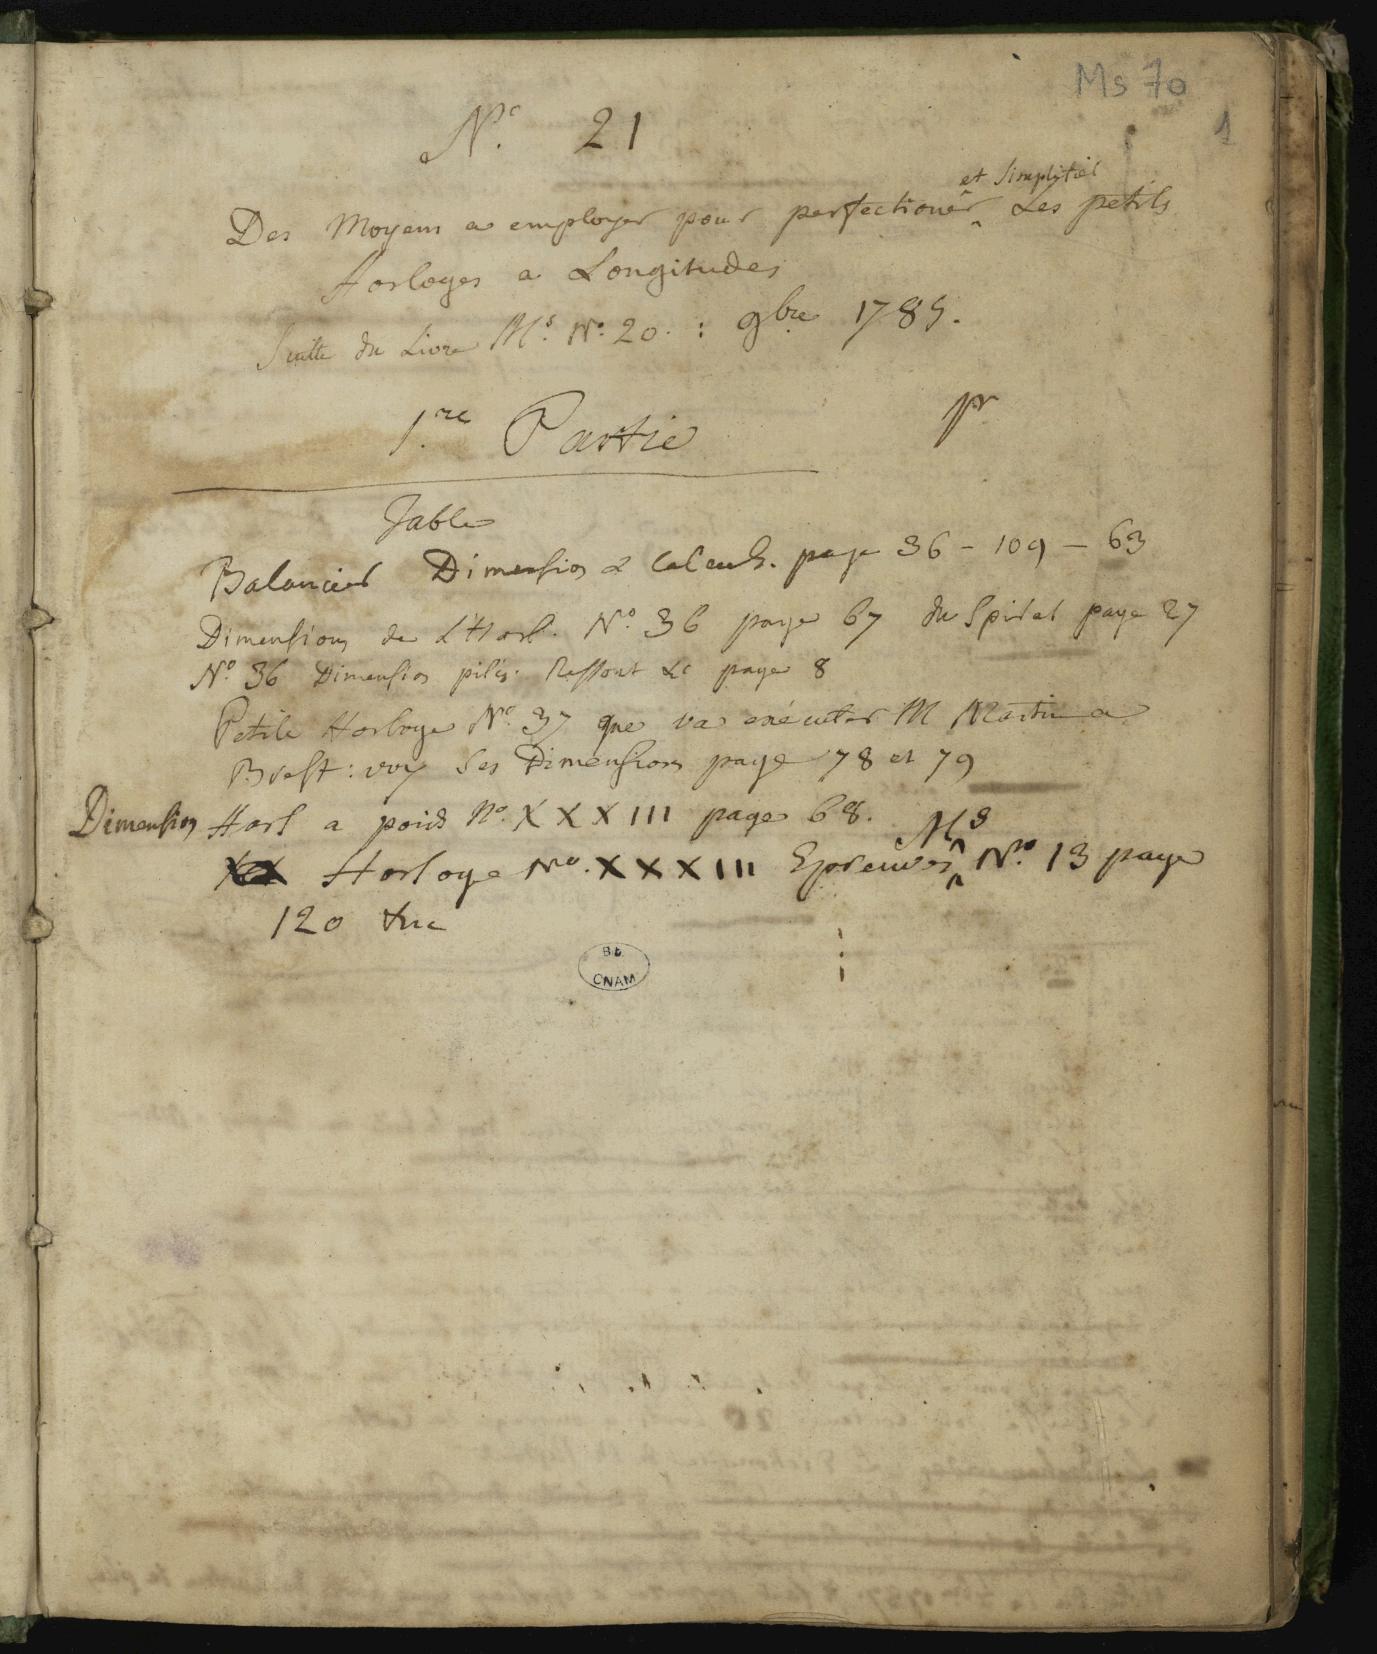 Ms 70
1
N.o 21
et Simplifier
Des Moyens a employer pour perfectioner Les petits
Horloges a Longitudes
Suitte du Livre M.s N.o 20. : 9bre 1785.
1.re Partie pr
Table
Balancier Dimension & Calculs. page 36 - 109 - 63
Dimensions de L'Horl. No. 36 page 67 du Spiral page 27
No. 36 Dimension piliers. Ressort &c page 8
Petite Horloge No. 37 que va exécuter M Martin a
Brest: voy Ses Dimensions page 78 et 79
Dimension Horl a poids No. XXXIII page 68.
Horloge No. XXXIII Epreuves Ms No. 13 page
120 &c
Bib.
CNAM